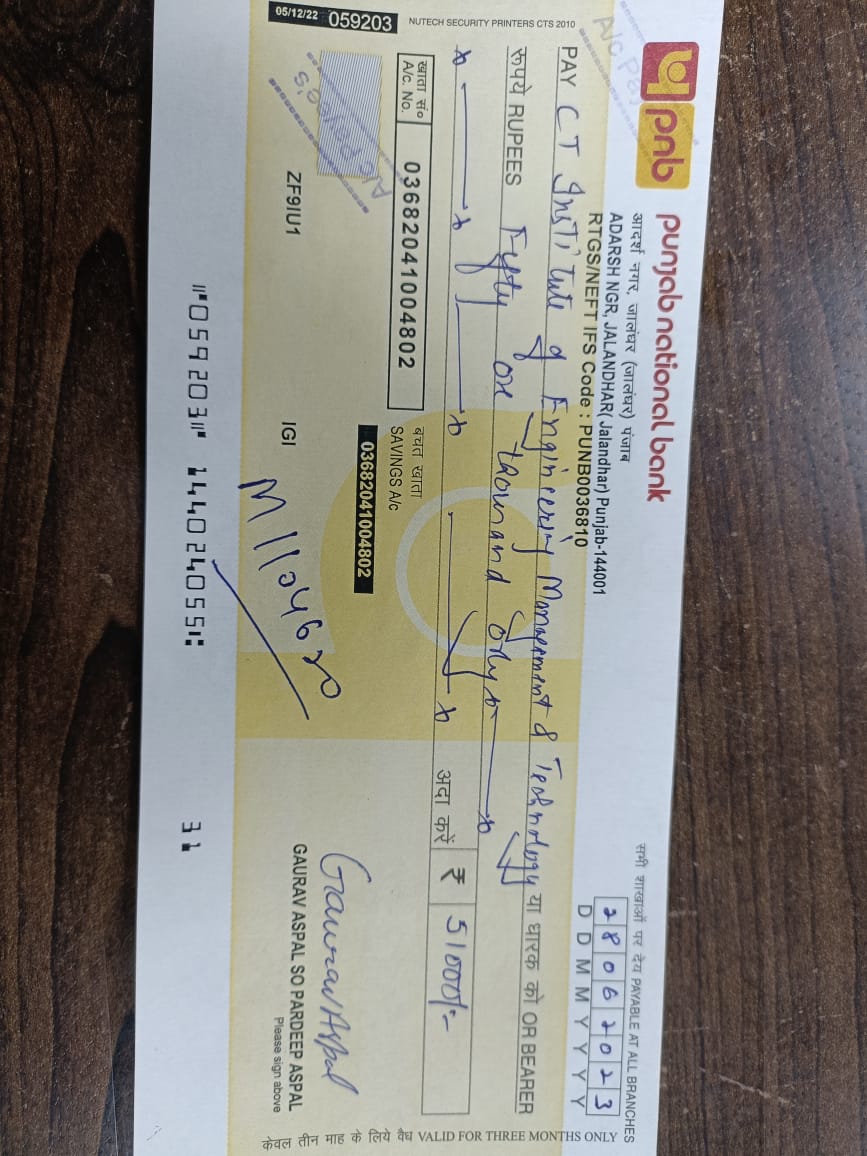 पnb punjab national bank
आदर्श नगर, जालंघर (जालंघर) पंजाब
ADARSH NGR, JALANDHAR( Jalandhar) Punjab-144001
RTGS/NEFT IFS Code : PUNB0036810
A/c Pay
सभी शाखाओं पर देय PAYABLE AT ALL BRANCHES
28062023
D D M M Y Y Y Y
PAY CT Institute of Engineering Management & Technology या धारक को OR BEARER
रूपये RUPEES Fifty one thousand only
अदा करें ₹ 51000/-
खाता सं० A/c. No. 03682041004802
बचत खाता
SAVINGS A/c
03682041004802
A/c Payee's
Gaurav Aspal
GAURAV ASPAL SO PARDEEP ASPAL
Please sign above
ZF9IU1
IGI
M1104620
⑈059203⑈ 144024055⑆ 31
NUTECH SECURITY PRINTERS CTS 2010
05/12/22 059203
केवल तीन माह के लिये वैध VALID FOR THREE MONTHS ONLY